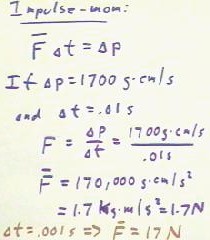 Impulse-mom:
F̅ Δt = Δp
If Δp = 1700 g·cm/s
and Δt = .01s
F = Δp/Δt = 1700 g·cm/s / .01s
F̅ = 170,000 g·cm/s²
= 1.7 kg·m/s² = 1.7N
Δt = .001s => F̅ = 17N